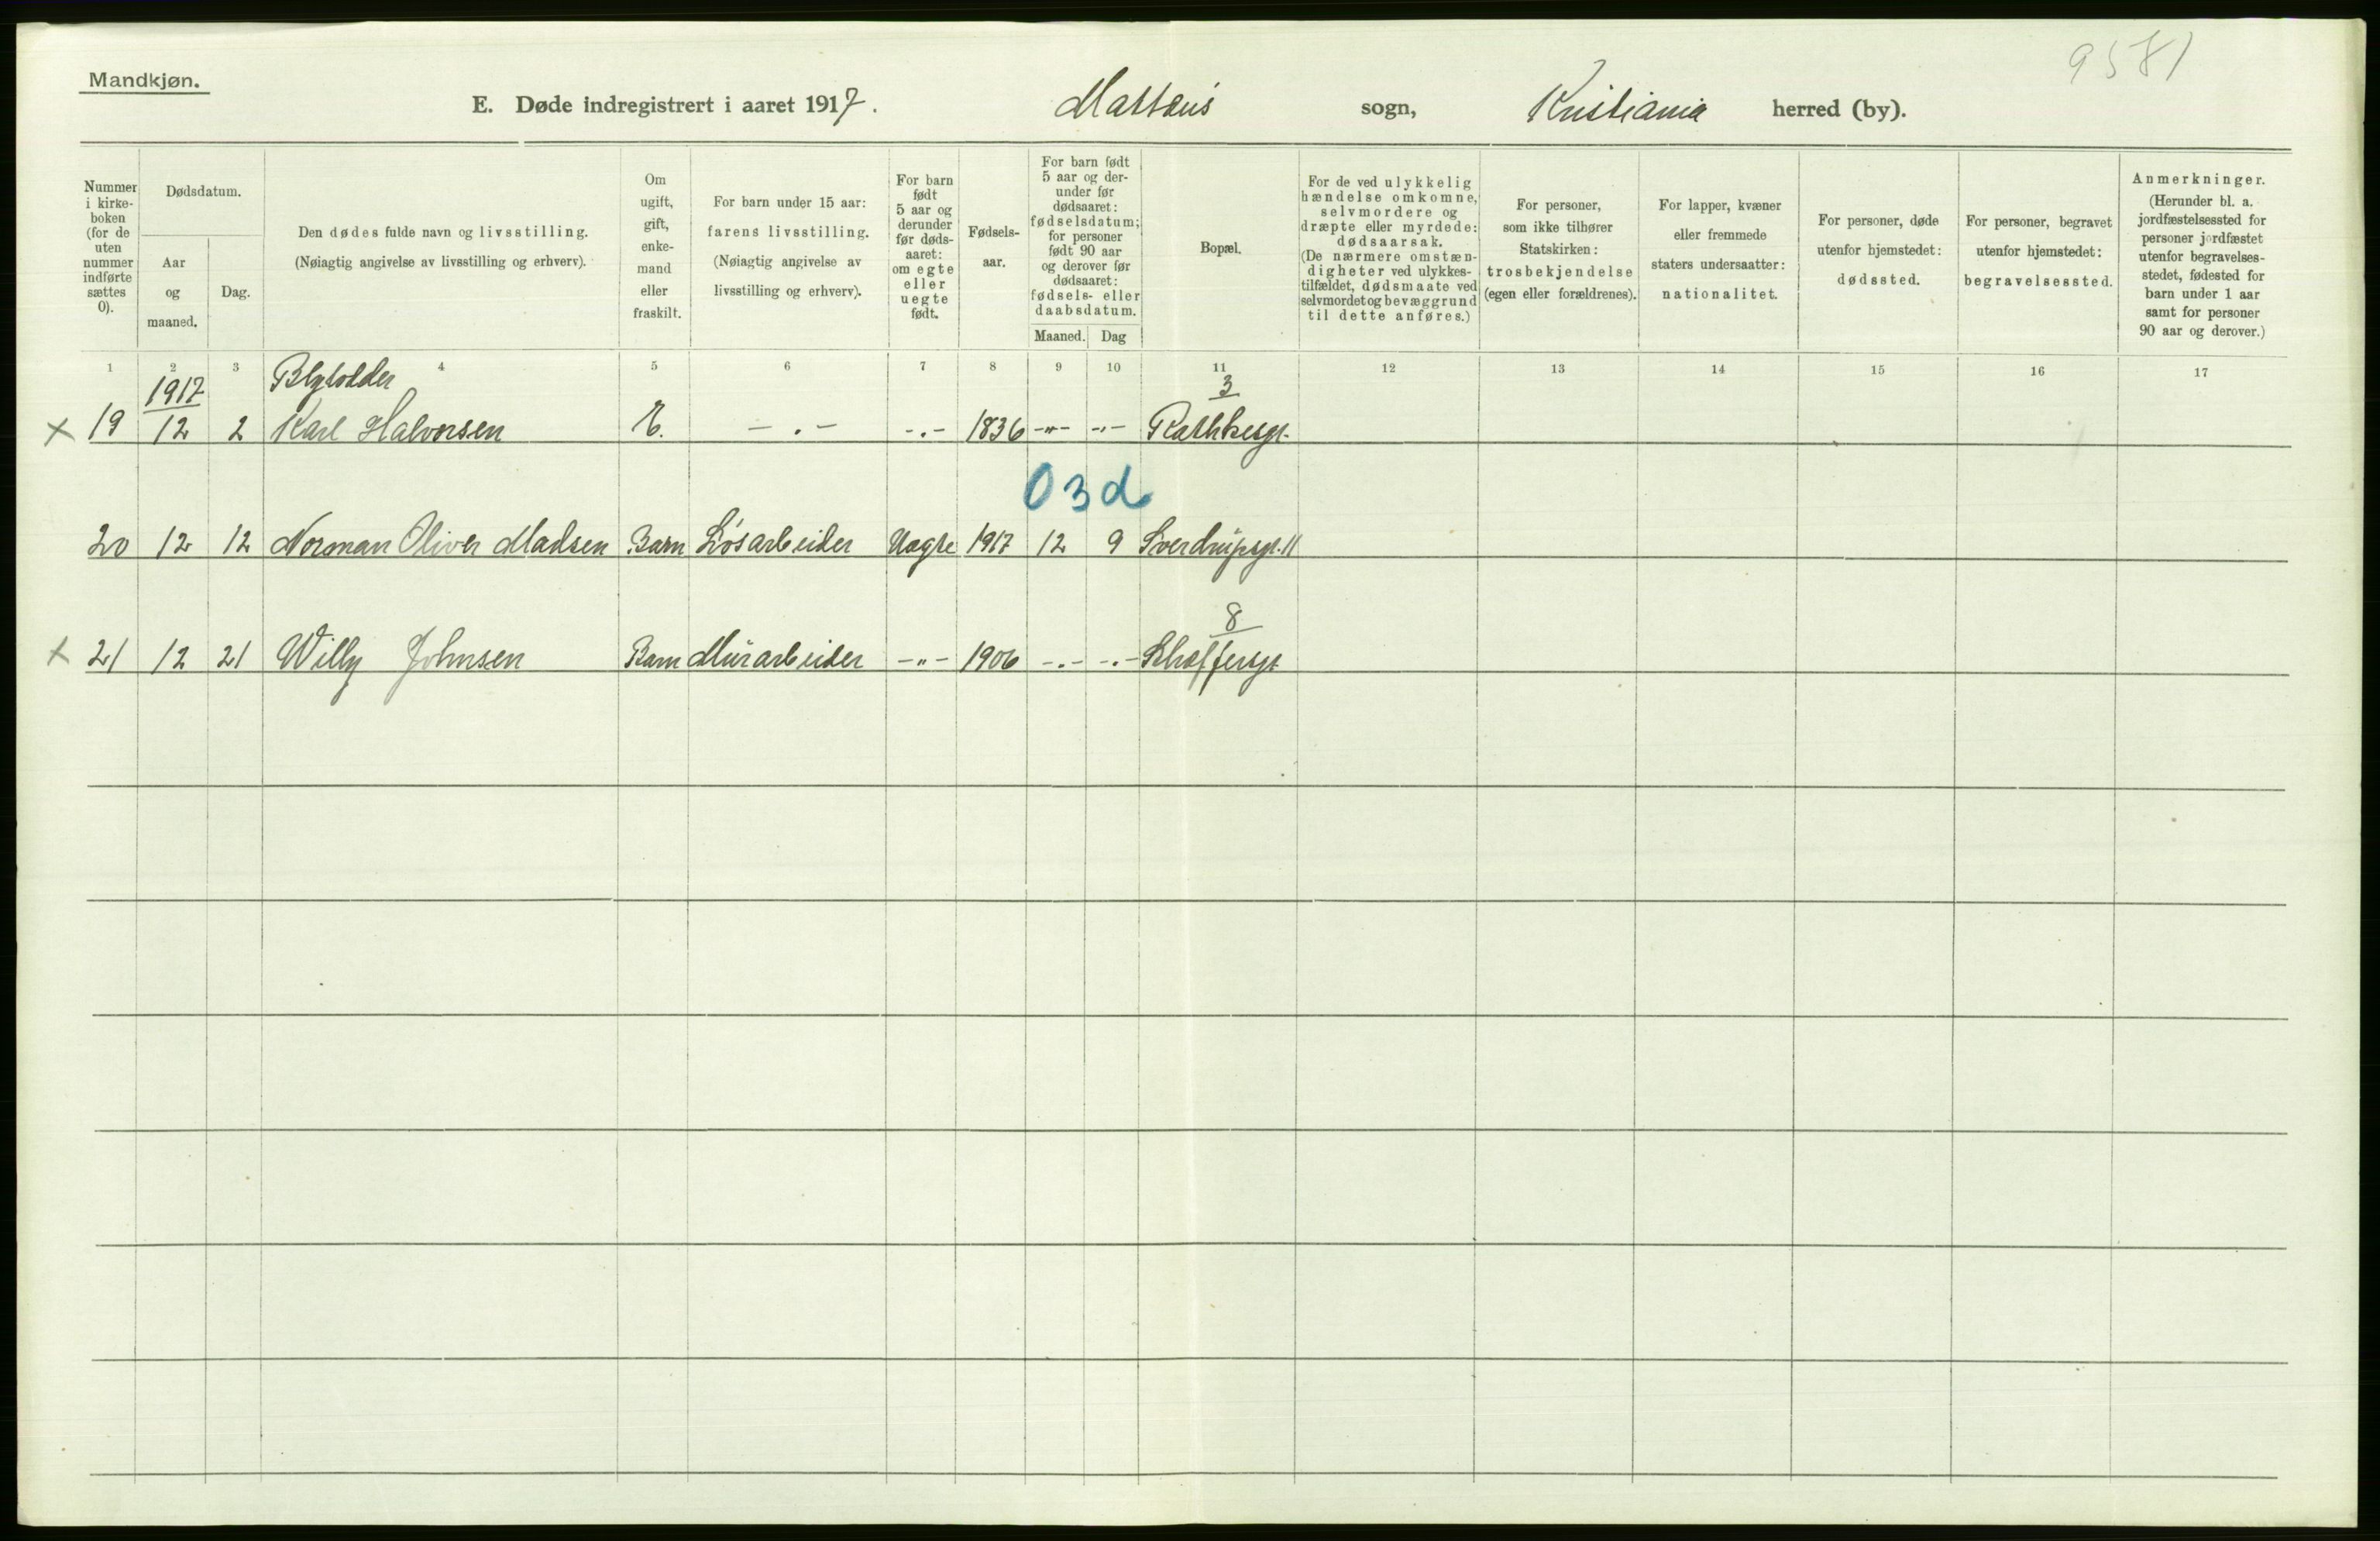 9581
Mandkjøn.
E. Døde indregistrert i aaret 1917. Mattæus sogn, Kristiania herred (by).
Nummer i kirke-boken (for de uten nummer indførte sættes 0).
Dødsdatum.
Aar og maaned.
Dag.
Den dødes fulde navn og livsstilling.
(Nøiagtig angivelse av livsstilling og erhverv).
Om ugift, gift, enke-mand eller fraskilt.
For barn under 15 aar: farens livsstilling.
(Nøiagtig angivelse av livsstilling og erhverv).
For barn født 5 aar og derunder før døds-aaret: om egte eller uegte født.
Fødsels-aar.
For barn født 5 aar og der-under før dødsaaret: fødselsdatum; for personer født 90 aar og derover før dødsaaret: fødsels- eller daabsdatum.
Maaned. Dag
Bopæl.
For de ved ulykkelig hændelse omkomne, selvmordere og dræpte eller myrdede: dødsaarsak.
(De nærmere omstæn-digheter ved ulykkes-tilfældet, dødsmaate ved selvmordet og bevæggrund til dette anføres.)
For personer, som ikke tilhører Statskirken: trosbekjendelse (egen eller forældrenes).
For lapper, kvæner eller fremmede staters undersaatter: nationalitet.
For personer, døde utenfor hjemstedet: dødssted.
For personer, begravet utenfor hjemstedet: begravelsessted.
Anmerkninger.
(Herunder bl. a. jordfæstelsessted for personer jordfæstet utenfor begravelses-stedet, fødested for barn under 1 aar samt for personer 90 aar og derover.)
1 2 3 4 5 6 7 8 9 10 11 12 13 14 15 16 17
1917 3
x 19 12 2 Karl Halvorsen E. - . - - . - 1836 - " - - " - Rathkesgt.
0 3 d
20 12 12 Norman Oliver Madsen Barn Løsarbeider Uægte 1917 12 9 Sverdrupsgt. 11
8
x 21 12 21 Willy Johnsen Barn Murarbeider - " - 1906 - . - - . - Skaffersgt